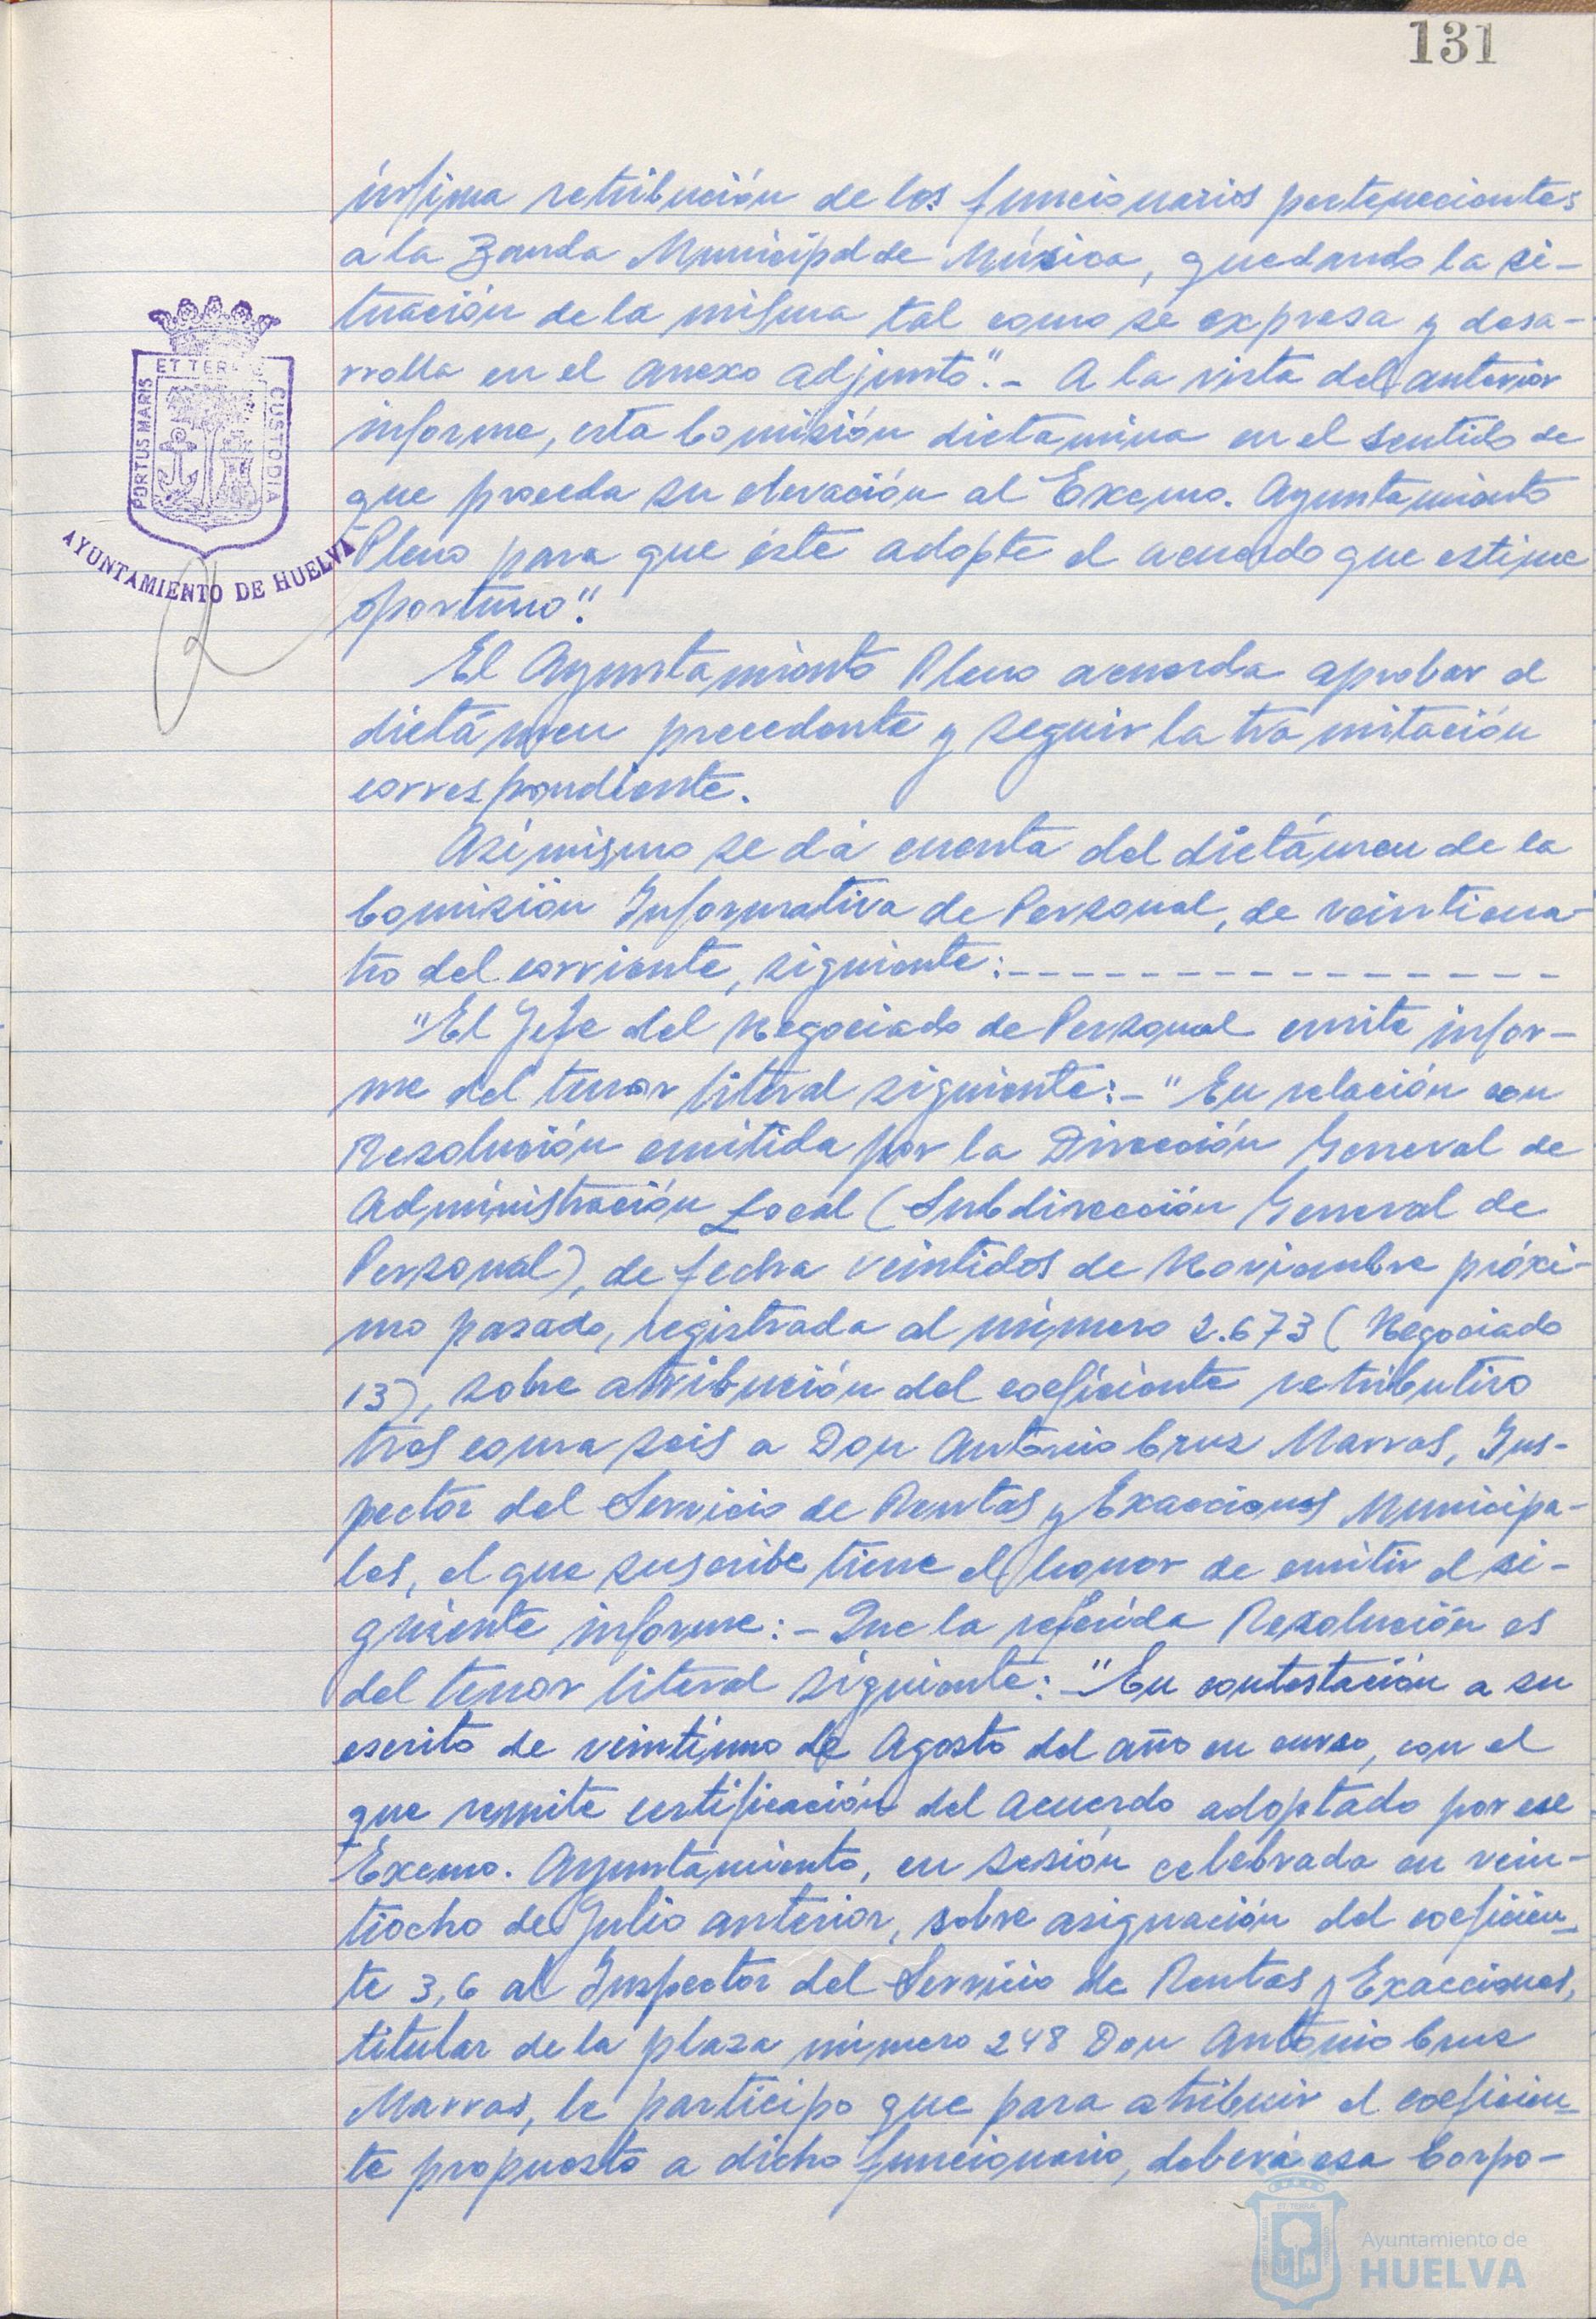 131
ínfima retribución de los funcionarios pertenecientes
a la Banda Municipal de Música, quedando la si-
tuación de la misma tal como se expresa y desa-
rrolla en el anexo adjunto".- A la vista del anterior
informe, esta Comisión dictamina en el sentido de
que proceda su elevación al Excmo. Ayuntamiento
Pleno para que éste adopte el acuerdo que estime
oportuno".
El Ayuntamiento Pleno acuerda aprobar el
dictámen precedente y seguir la tramitación
correspondiente.
Asímismo se dá cuenta del dictámen de la
Comisión Informativa de Personal, de veinticua-
tro del corriente, siguiente:- - - - - - - - - - - - - - -
"El Jefe del Negociado de Personal emite infor-
me del tenor literal siguiente:- "En relación con
Resolución emitida por la Dirección General de
Administración Local (Subdirección General de
Personal), de fecha veintidos de Noviembre próxi-
mo pasado, registrada al número 2.673 (Negociado
13), sobre atribución del coeficiente retributivo
tres coma seis a Don Antonio Cruz Marras, Ins-
pector del Servicio de Rentas y Exacciones Municipa-
les, el que suscribe tiene el honor de emitir el si-
guiente informe:- Que la referida Resolución es
del tenor literal siguiente:- "En contestación a su
escrito de veintiuno de Agosto del año en curso, con el
que remite certificación del acuerdo adoptado por ese
Excmo. Ayuntamiento, en sesión celebrada en vein-
tiocho de Julio anterior, sobre asignación del coeficien-
te 3,6 al Inspector del Servicio de Rentas y Exacciones,
titular de la plaza número 248 Don Antonio Cruz
Marras, le participo que para atribuir el coeficien-
te propuesto a dicho funcionario, deberá esa Corpo-
PORTUS MARIS ET TERRE CUSTODIA
AYUNTAMIENTO DE HUELVA
Ayuntamiento de
HUELVA